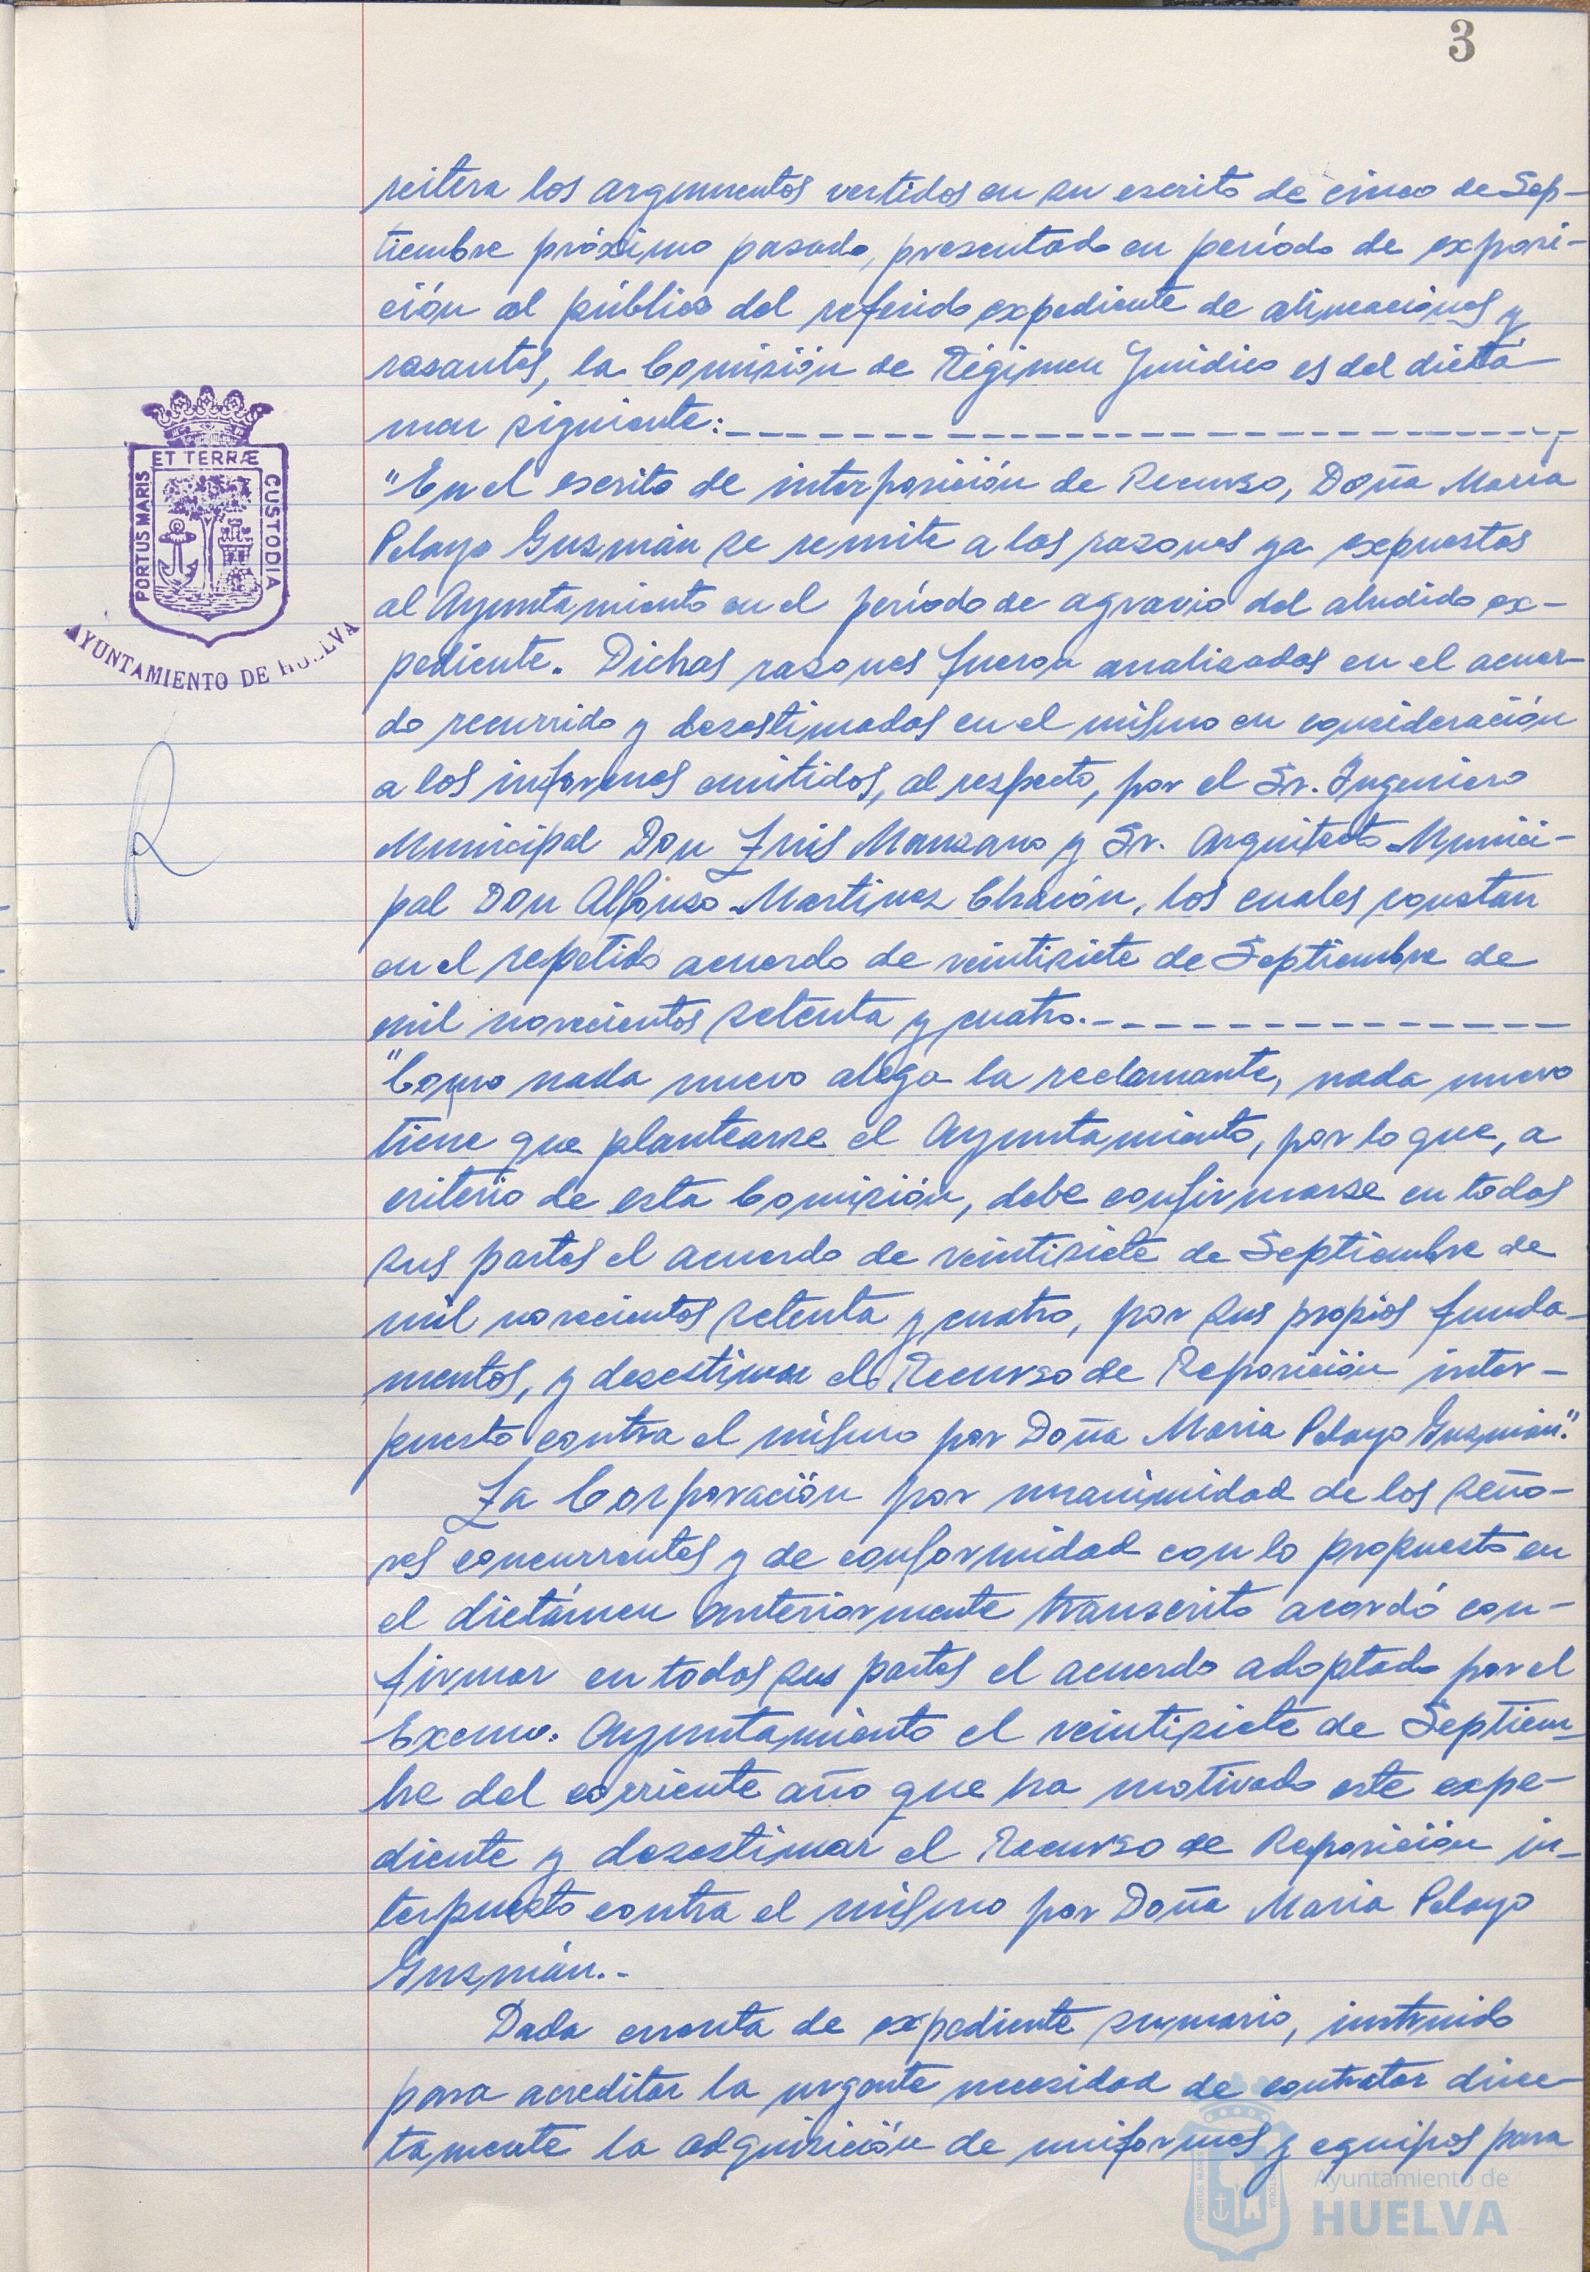 3
reitera los argumentos vertidos en su escrito de cinco de Sep-
tiembre próximo pasado, presentado en período de exposi-
ción al público del referido expediente de alineaciones y
rasantes, la Comisión de Régimen Jurídico es del dictá-
men siguiente:
"En el escrito de interposición de Recurso, Doña María
Pelayo Guzmán se remite a las razones ya expuestas
al Ayuntamiento en el período de agravio del aludido ex-
pediente. Dichas razones fueron analizadas en el acuer-
do recurrido y desestimadas en el mismo en consideración
a los informes emitidos, al respecto, por el Sr. Ingeniero
Municipal Don Luis Manzano y Sr. Arquitecto Munici-
pal Don Alfonso Martinez Chacón, los cuales constan
en el repetido acuerdo de veintisiete de Septiembre de
mil novecientos setenta y cuatro.-
"Como nada nuevo alega la reclamante, nada nuevo
tiene que plantearse el Ayuntamiento, por lo que, a
criterio de esta Comisión, debe confirmarse en todas
sus partes el acuerdo de veintisiete de Septiembre de
mil novecientos setenta y cuatro, por sus propios funda-
mentos, y desestimar el Recurso de Reposición inter-
puesto contra el mismo por Doña Maria Pelayo Guzmán".
La Corporación por unanimidad de los seño-
res concurrentes y de conformidad con lo propuesto en
el dictámen anteriormente transcrito acordó con-
firmar en todas sus partes el acuerdo adoptado por el
Excmo. Ayuntamiento el veintisiete de Septiem-
bre del corriente año que ha motivado este expe-
diente y desestimar el Recurso de Reposición in-
terpuesto contra el mismo por Doña Maria Pelayo
Guzmán.-
Dada cuenta de expediente sumario, instruido
para acreditar la urgente necesidad de contratar direc-
tamente la adquisición de uniformes y equipos para
PORTUS MARIS
ET TERRÆ
CUSTODIA
AYUNTAMIENTO DE HUELVA
Ayuntamiento de
HUELVA